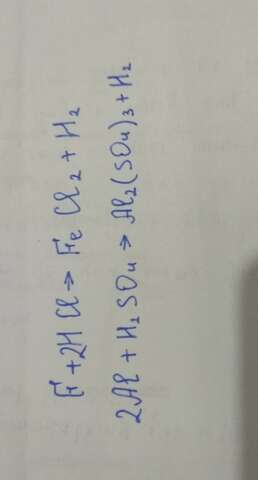 Fe + 2HCl → FeCl₂ + H₂
2Al + H₂SO₄ → Al₂(SO₄)₃ + H₂